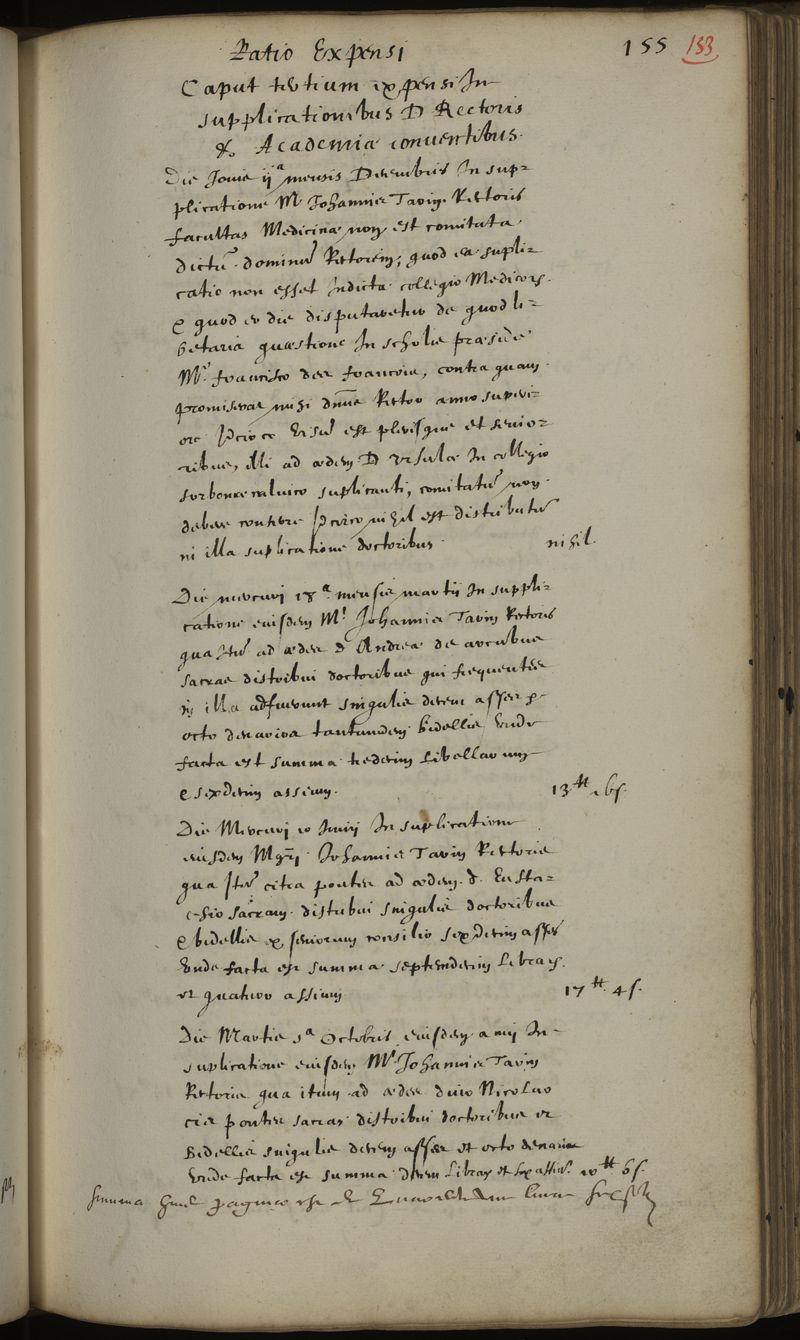 Ratio Expensi 155 133
Caput tertium expensi In
supplicationibus D Rectoris
& Academiæ conventibus.
Die Jovis ij^a mensis Decembris In sup=
plicatione M^i Johannis Tavin Rectoris
facultas Medicinæ non est comitata
dictu dominu Rectorem, quod ea supli=
catio non esset Indicta collegio Medicor.
& quod eo die disputaretur de quodli=
betaria quæstione In scholis præside
M^o francisco des francois, contra quam
promiserat nisi dnus Rector anno superi=
ore Idcirco visu est plerisque et senio=
ribus, illi ad ædem D Ursulæ In collegio
sorbonæ calvico suplicanti, comitatu non
debere Idcirco nihil est distributu
in illa suplicatione doctoribus. nihil.
Die mercurij 18^a mensis martii In suppli=
catione eiusdem M^i Johannis Tavin Rectoris
qua Itu ad ædes d Andreæ de arcubus
sacras distribui doctoribus qui frequentes
in illa adfuerunt singulis decem asses &
octo denarios tantumdem bidellis unde
facta est summa tredecim Libellarum
& sexdecim assium. 13^tt 16 s.
Die Mercurij 10 Junij In suplicatione
eiusdem Mgri Johannis Tavin Rectoris
qua Itu citra pontes ad ædem d. Eusta=
chio sacram distribui singulis doctoribus
& bidellis ex seniorum consilio sexdecim asses
Unde facta est summa septemdecim Librar.
et quatuor assium 17^tt 4 s.
Die Martis 5^a Octobris eiusdem anni In
suplicatione eiusdem M^i Johannis Tavin
Rectoris qua itum ad ædes divo Nicolao
cis pontes sacras distribui doctoribus et
Bidellis singulis decem asses et octo denarios
Unde facta est summa decem Librar et sex assiu. 10^tt 6 s.
summa huius paginæ est